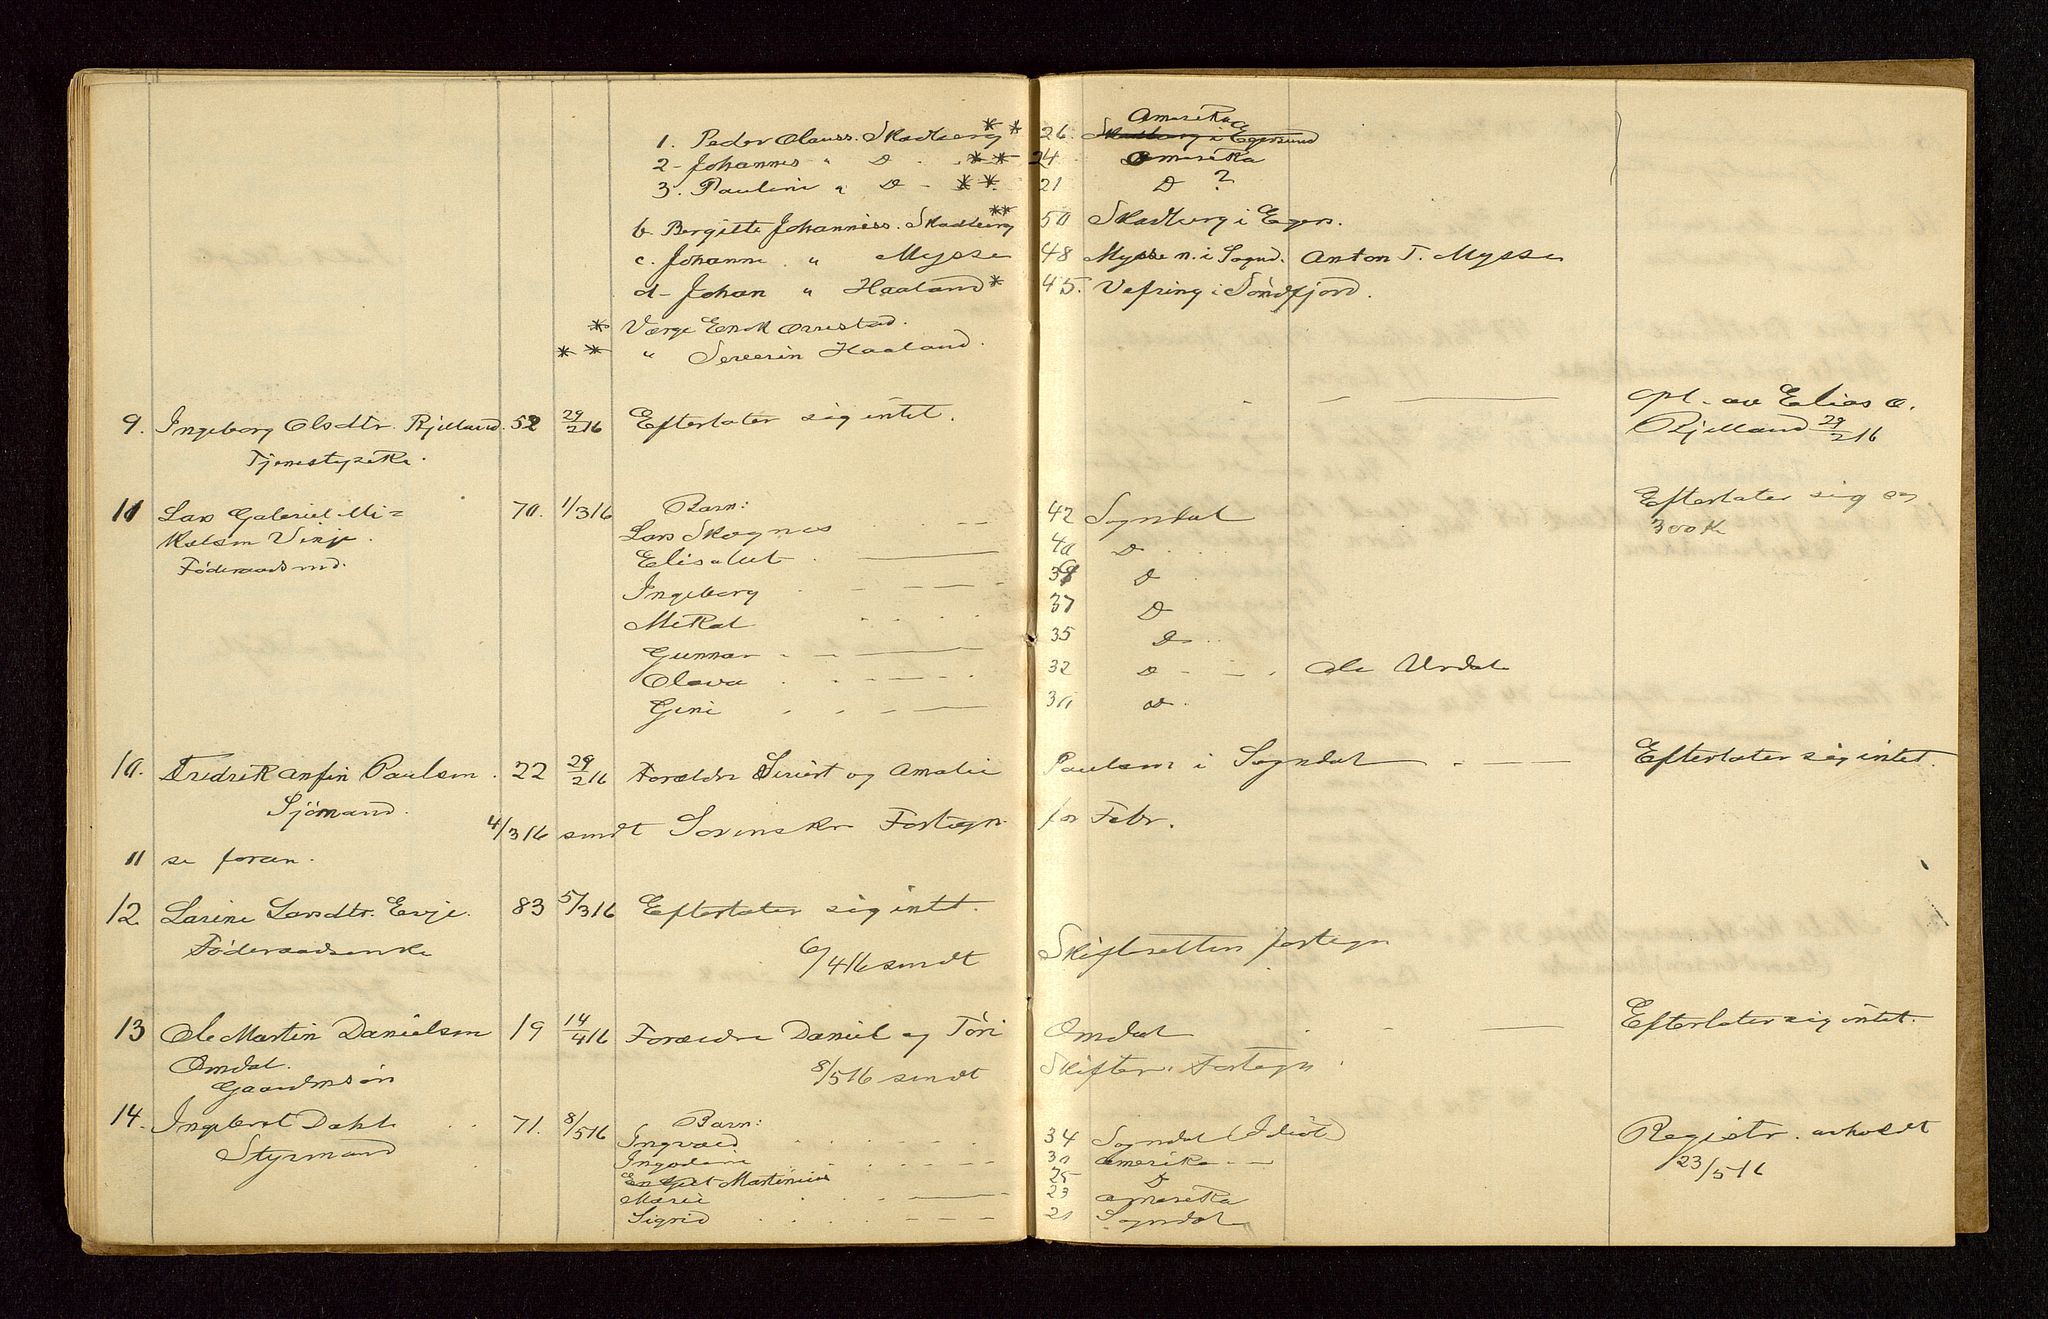 Amerika
1. Peder Olauss. Skadberg ** 26. Skadberg i Egersund
2 - Johannes " D ** 24 Amerika
3. Pauline " D - ** 21 D ?
b. Bergitte Johanness. Skadberg ** 50 Skadberg i Egers.
c. Johanne " Mysse 48 Mysse n. i Sognd. Anton T. Mysse
d - Johan " Haaland * 45. Vefring i Søndfjord.
* Værge Enok Orrestad.
** " Severin Haaland.
opl. av Elias O.
9. Ingeborg Olsdtr. Rjelland. 52 29/2 16 Efterlater sig intet. Rjelland 29/2 16
Tjenestepike.
11 Lars Gabriel Mi= 70. 1/3 16 Barn: Efterlater sig ca
kalsen Vinje. Lars Skognes 42 Sogndal 300 K
Føderaadsmd. Elisabet 40 D
Ingeborg 39 D
Mikal 37 D
Gunnar 35 D
Olava 32 D Ole Urdal
Gine 30 D
10. Fredrik Anfin Paulsen. 22 29/2 16 Forældre Sivert og Amalie Paulsen i Sogndal Efterlater sig intet.
Sjømand.
4/3 16 sendt Sorenskr Fortegn for Febr.
11 se foran.
12. Larine Larsdtr. Evje. 83 5/3 16 Efterlater sig intet.
Føderaadsenke 6/4 16 sendt Skifteretten fortegn
13 Ole Martin Danielsen 19 14/4 16 Forældre Daniel og Tøri Omdal Efterlater sig intet.
Omdal. 8/5 16 sendt Skifter. Fortegn.
Gaardmsøn
14. Ingebret Dahl 71. 8/5 16 Barn: Registr. avholdt
Styrmand Ingvald 34 Sogndal (Idiot) 23/5 16
30 Amerika
Martinius 25 D
Marie 23 Amerika
Sigrid 21 Sogndal